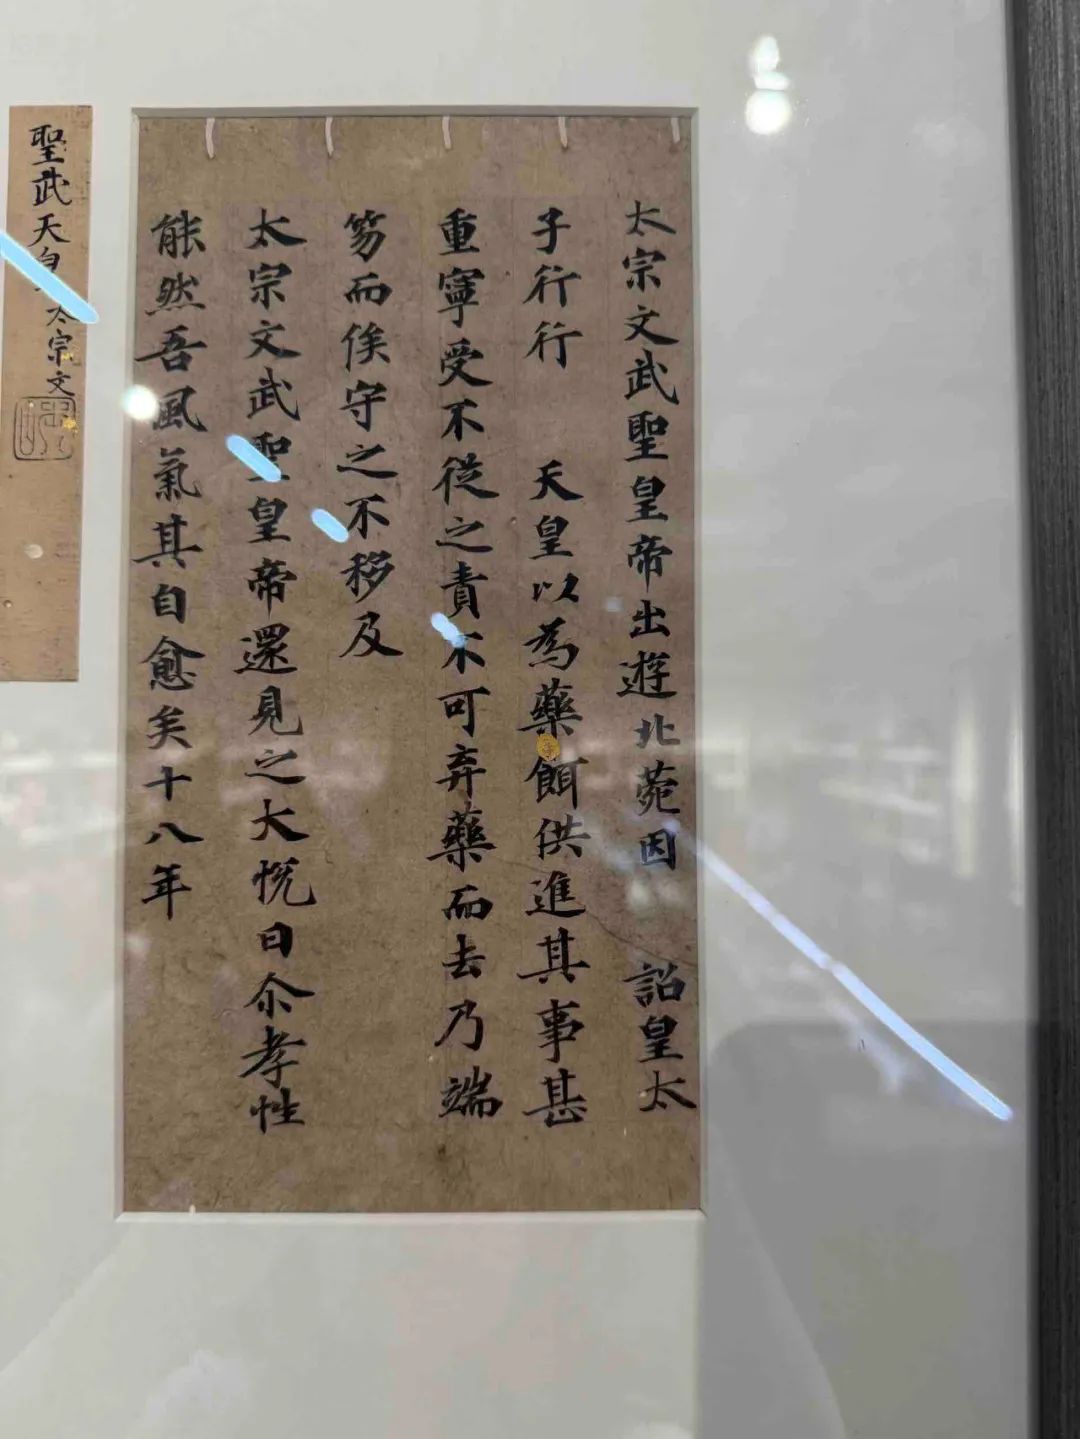 太宗文武聖皇帝出遊北菀因 詔皇太
子行行 天皇以為藥餌供進其事甚
重寧受不從之責不可弃藥而去乃端
笏而俟守之不移及
太宗文武聖皇帝還見之大悦曰尒孝性
能然吾風氣其自愈矣十八年
聖武天皇 太宗文